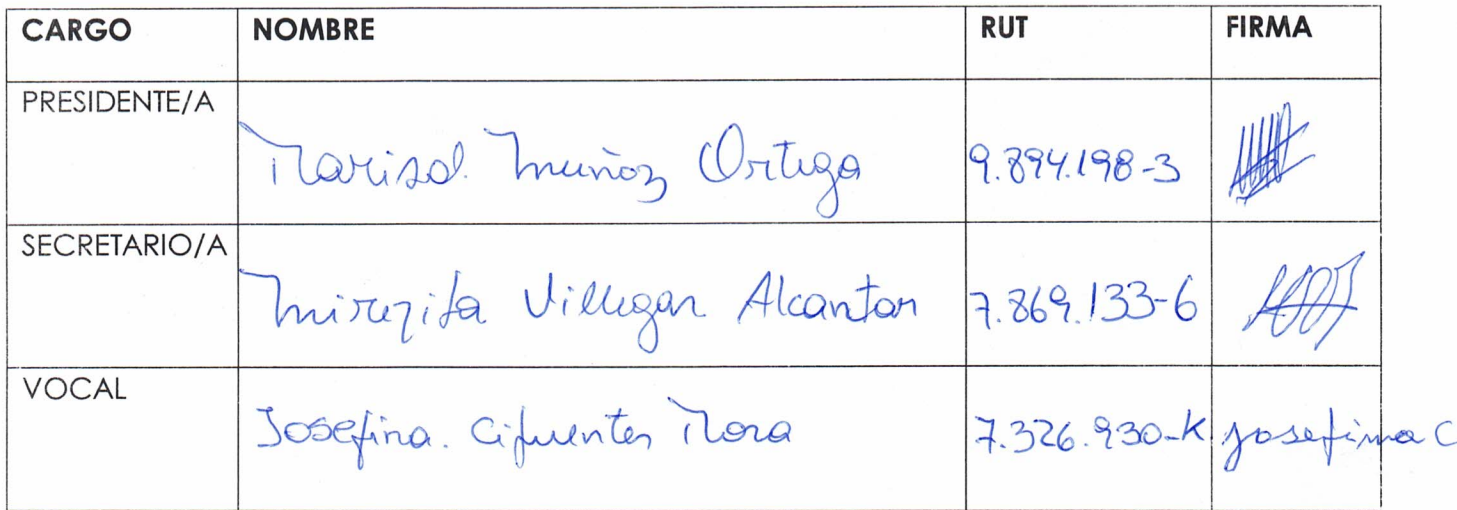 CARGO NOMBRE RUT FIRMA
PRESIDENTE/A Marisol Muñoz Ortega 9.894.198-3
SECRETARIO/A Villegas Alcantar 7.869.133-6
VOCAL Josefina Cifuentes Mora 7.326.930-K Josefina C